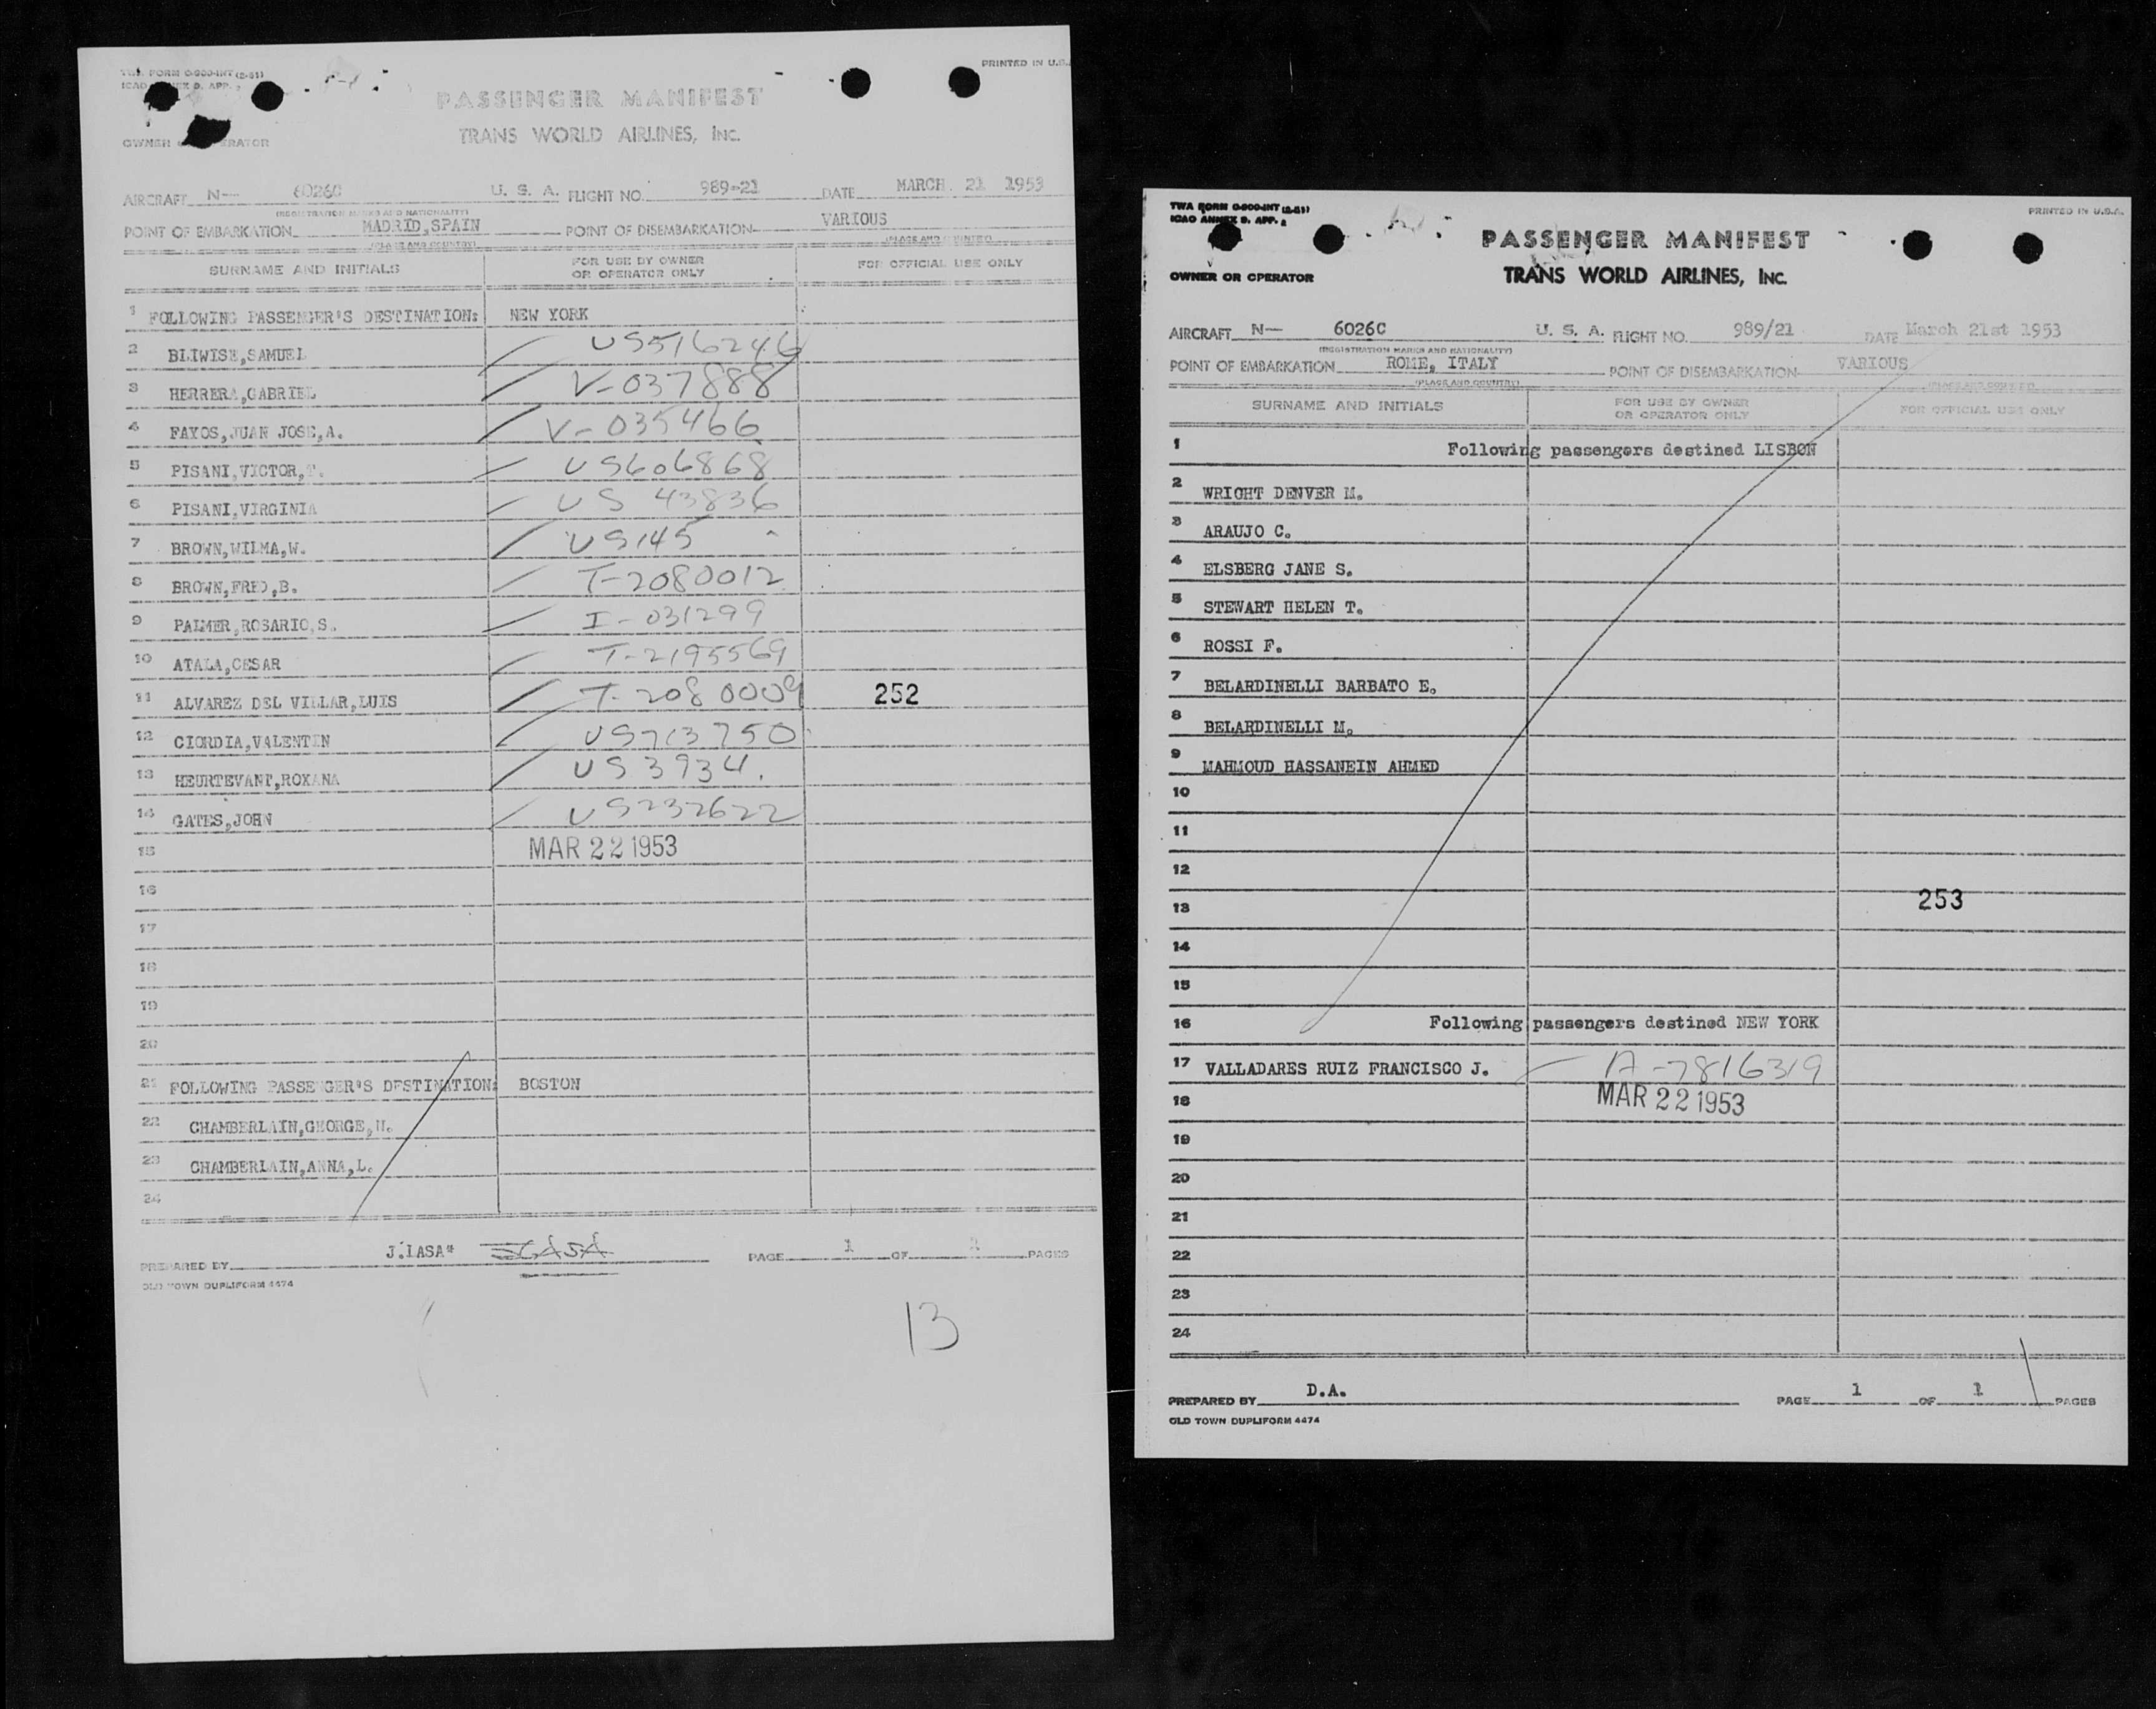 TWA FORM O-800-INT (2-51)
PRINTED IN U.S.
ICAO ANNEX 9. APP. 2
PASSENGER MANIFEST
TRANS WORLD AIRLINES, INC.
OWNER OR OPERATOR
AIRCRAFT N— 6026C U. S. A. FLIGHT NO. 989-21 DATE MARCH. 21 1953
(REGISTRATION MARKS AND NATIONALITY)
POINT OF EMBARKATION MADRID,SPAIN POINT OF DISEMBARKATION VARIOUS
(PLACE AND COUNTRY) (PLACE AND COUNTRY)
SURNAME AND INITIALS FOR USE BY OWNER OR OPERATOR ONLY FOR OFFICIAL USE ONLY
1 FOLLOWING PASSENGER'S DESTINATION: NEW YORK
2 BLIWISE,SAMUEL US516246
3 HERRERA,GABRIEL V-037888
4 FAYOS,JUAN JOSE,A. V-035466
5 PISANI,VICTOR,T. US606868
6 PISANI,VIRGINIA US 43836
7 BROWN,WILMA,W. US145
8 BROWN,FRED,B. T-2080012
9 PALMER,ROSARIO,S. I-031299
10 ATALA,CESAR T-2195569
11 ALVAREZ DEL VILLAR,LUIS T-2080009 252
12 CIORDIA,VALENTIN US713750
13 HEURTEVANT,ROXANA US3934.
14 GATES,JOHN US232622
15 MAR 22 1953
16
17
18
19
20
21 FOLLOWING PASSENGER'S DESTINATION: BOSTON
22 CHAMBERLAIN,GEORGE,N.
23 CHAMBERLAIN,ANNA,L.
24
PREPARED BY J.IASA" PAGE 1 OF PAGES
OLD TOWN DUPLIFORM 4474
13
TWA FORM O-800-INT (2-51)
PRINTED IN U.S.A.
ICAO ANNEX 9. APP. 2
PASSENGER MANIFEST
OWNER OR OPERATOR TRANS WORLD AIRLINES, INC.
AIRCRAFT N— 6026C U. S. A. FLIGHT NO. 989/21 DATE March 21st 1953
(REGISTRATION MARKS AND NATIONALITY)
POINT OF EMBARKATION ROME, ITALY POINT OF DISEMBARKATION VARIOUS
(PLACE AND COUNTRY) (PLACE AND COUNTRY)
SURNAME AND INITIALS FOR USE BY OWNER OR OPERATOR ONLY FOR OFFICIAL USE ONLY
1 Following passengers destined LISBON
2 WRIGHT DENVER M.
3 ARAUJO C.
4 ELSBERG JANE S.
5 STEWART HELEN T.
6 ROSSI F.
7 BELARDINELLI BARBATO E.
8 BELARDINELLI M.
9 MAHMOUD HASSANEIN AHMED
10
11
12
13 253
14
15
16 Following passengers destined NEW YORK
17 VALLADARES RUIZ FRANCISCO J. A-7816319
18 MAR 22 1953
19
20
21
22
23
24
PREPARED BY D.A. PAGE 1 OF 1 PAGES
OLD TOWN DUPLIFORM 4474